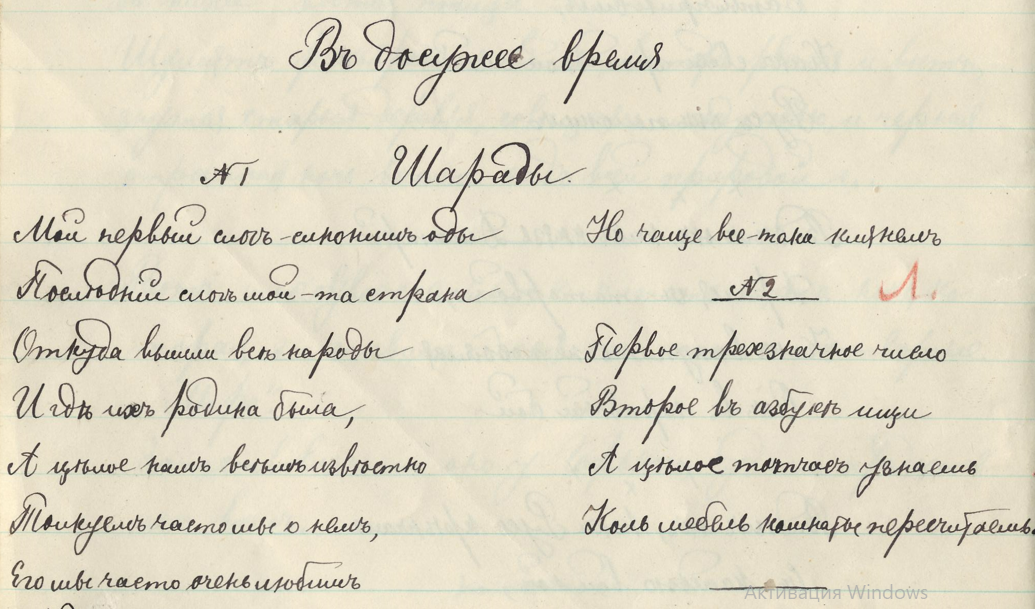 Въ досужее время
Шарады.
№1
Мой первый слогъ – синонимъ оды
Последнiй слогъ мой – та страна
Откуда вышли всѣ народы
И гдѣ ихъ родина была,
А цѣлое намъ всѣмъ извѣстно
Толкуемъ часто мы о немъ,
Его мы часто очень любимъ
Но чаще все-таки клянемъ
№2
Л.
Первое трехзначное число
Второе въ азбукѣ ищи
А цѣлое тотчасъ узнаешь
Коль мебель комнаты пересчитаешь.
Активация Windows